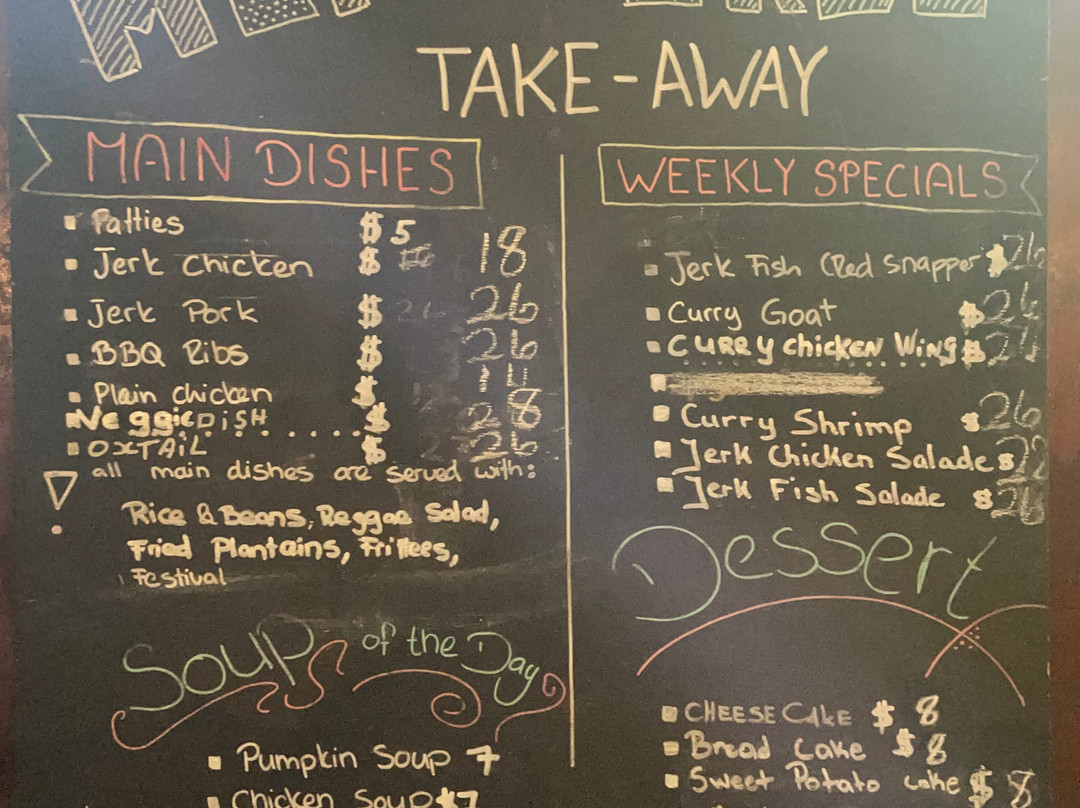 TAKE-AWAY
MAIN DISHES
Patties $ 5
Jerk Chicken $ 18
Jerk Pork $ 26
BBQ Ribs $ 26
Plain chicken $
VeggieDISH ......$ 28
OXTAIL $ 26
all main dishes are served with:
Rice & Beans, Reggae Salad,
Fried Plantains, Frittees,
Festival
Soup of the Day
Pumpkin Soup 7
Chicken Soup $7
WEEKLY SPECIALS
Jerk Fish (Red Snapper $26
Curry Goat $26
CURRY chicken Wing $
Curry Shrimp $26
Jerk Chicken Salade $
Jerk Fish Salade $26
Dessert
CHEESE Cake $ 8
Bread Cake $ 8
Sweet Potato cake $ 8